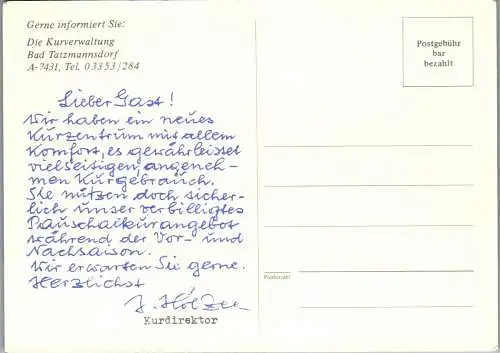 Gerne informiert Sie:
Die Kurverwaltung
Bad Tatzmannsdorf
A-7431, Tel. 03353/284
Postgebühr
bar
bezahlt
Lieber Gast!
Wir haben ein neues
Kurzentrum mit allem
Komfort, es gewährleistet
vielseitigen, angeneh-
men Kurgebrauch.
Sie nützen doch sicher-
lich unser verbilligtes
Pauschalkurangebot
während der Vor- und
Nachsaison.
Wir erwarten Sie gerne.
Herzlichst
Kurdirektor
Postleitzahl